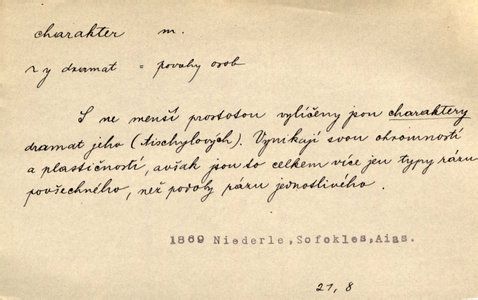 charakter m.
v y dramat = povahy osob
S ne menší prostotou vylíčeny jsou charaktery
dramat jeho (Aischylových). Vynikají svou ohromností
a plastičností, avšak jsou to celkem více jen typy rázu
povšechného, než podoby rázu jednotlivého.
1869 Niederle, Sofokles, Aias.
21, 8